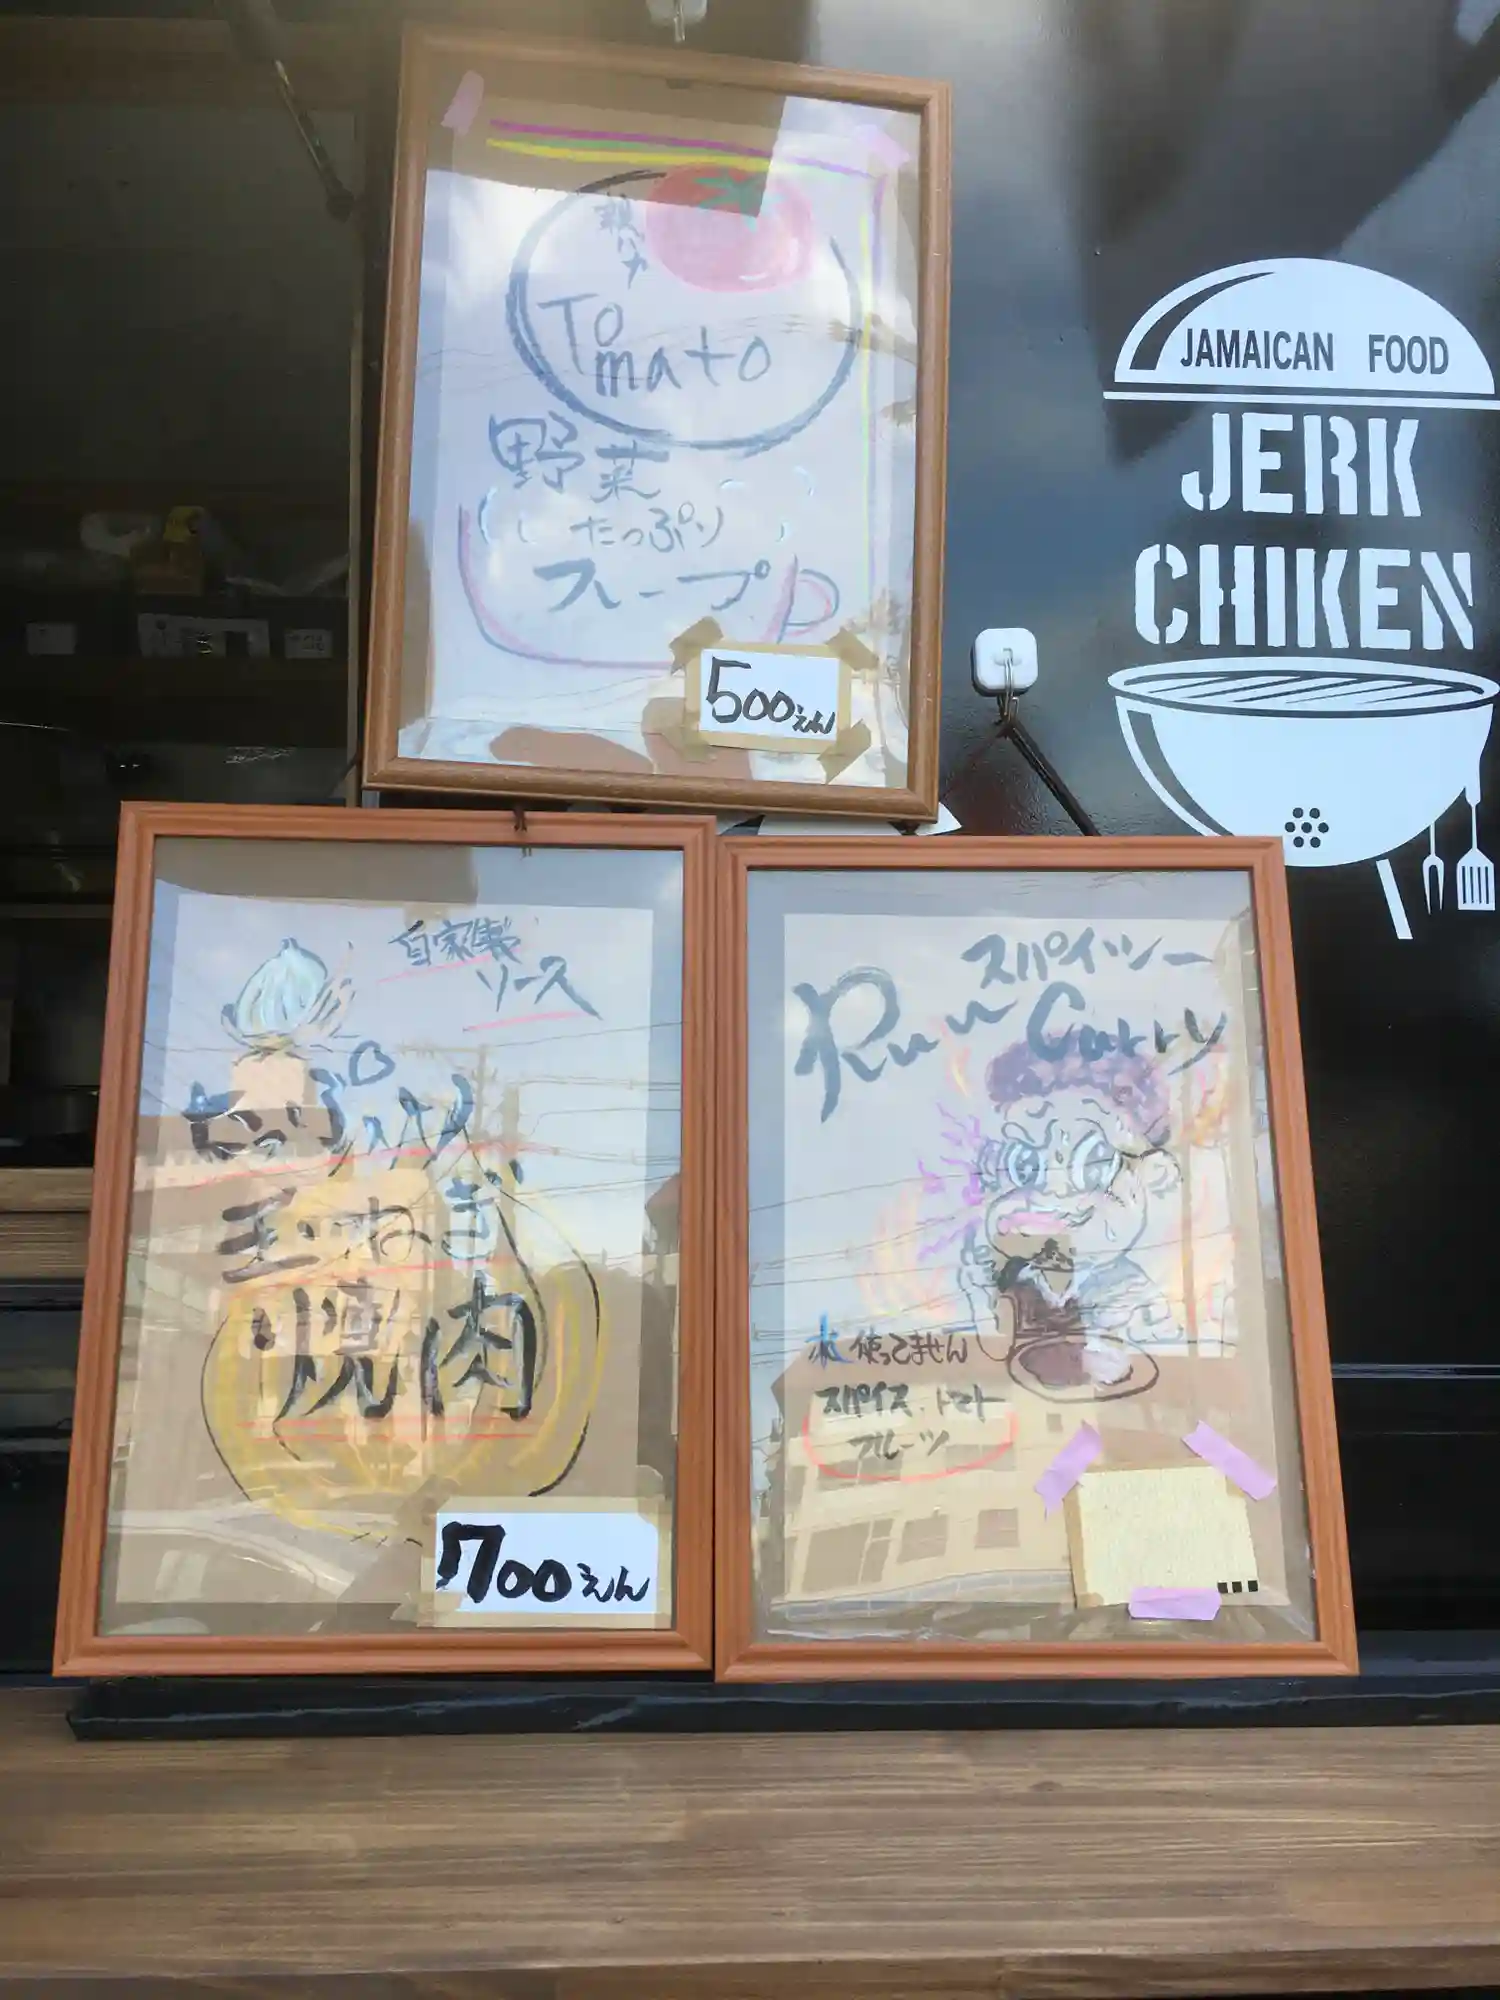 Tomato
野菜
たっぷり
スープ
500えん
JAMAICAN FOOD
JERK
CHIKEN
自家製
ソース
たっぷり
玉ねぎ
焼肉
700えん
スパイシー
Curry
水使ってません
スパイス、トマト
フルーツ